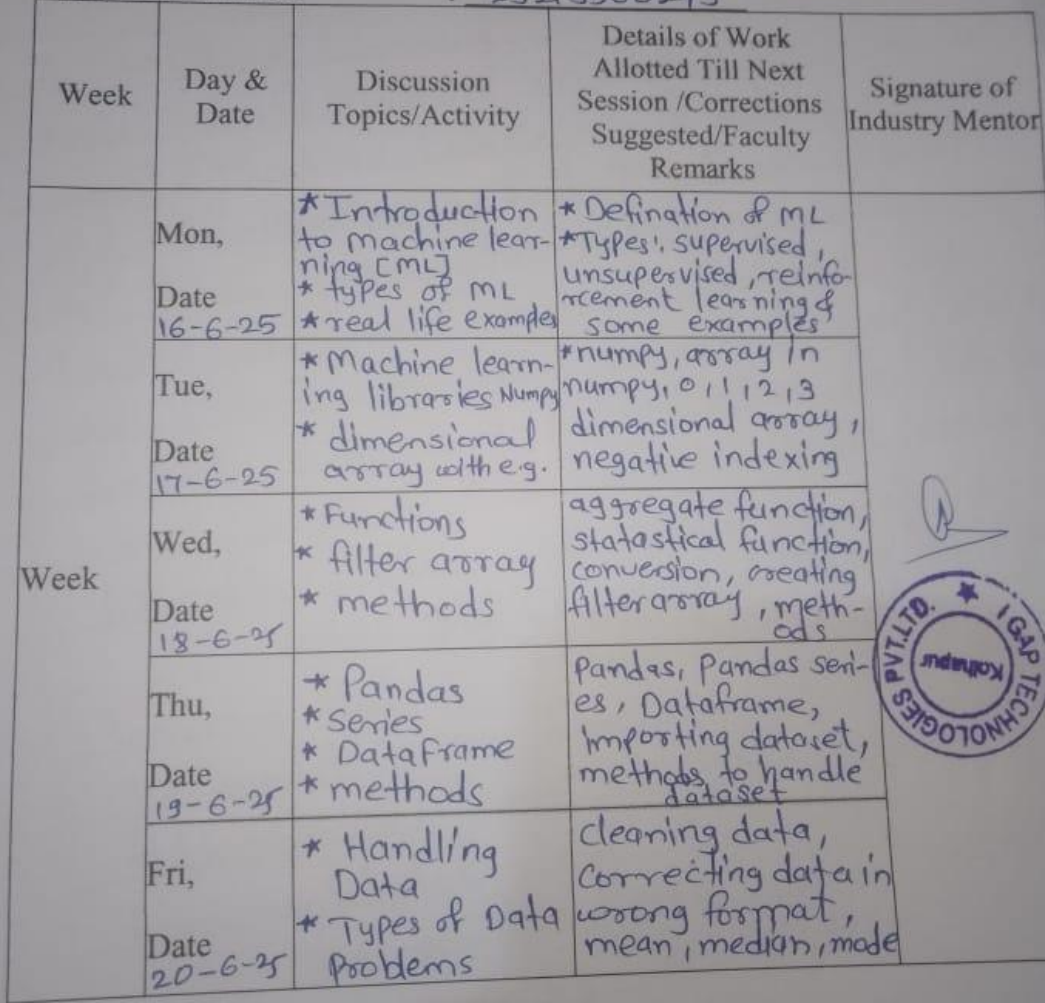 Week
Day &
Date
Discussion
Topics/Activity
Details of Work
Allotted Till Next
Session /Corrections
Suggested/Faculty
Remarks
Signature of
Industry Mentor
Week
Mon,
Date
16-6-25
* Introduction
to machine lear-
ning [ML]
* types of ML
* real life examples
* Defination of ML
* Types: supervised,
unsupervised, reinfo-
rcement learning &
some examples
Tue,
Date
17-6-25
* Machine learn-
ing libraries Numpy
* dimensional
array with e.g.
* numpy, array in
numpy, 0,1,2,3
dimensional array,
negative indexing
Wed,
Date
18-6-25
* Functions
* filter array
* methods
aggregate function,
statastical function,
conversion, creating
filter array, meth-
ods
Thu,
Date
19-6-25
* Pandas
* Series
* DataFrame
* methods
Pandas, Pandas seri-
es, Dataframe,
importing dataset,
methods to handle
dataset
Fri,
Date
20-6-25
* Handling
Data
* Types of Data
Problems
cleaning data,
Correcting data in
wrong format,
mean, median, mode
IGAP TECHNOLOGIES PVT.LTD.
Kolhapur